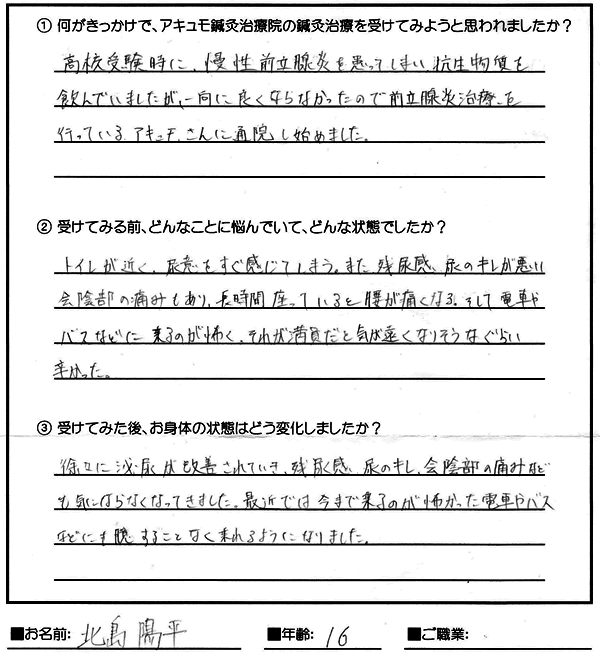 ① 何がきっかけで、アキュモ鍼灸治療院の鍼灸治療を受けてみようと思われましたか?
高校受験時に、慢性前立腺炎を患ってしまい、抗生物質を
飲んでいましたが、一向に良くならなかったので前立腺炎治療を
行っているアキュモさんに通院し始めました。
② 受けてみる前、どんなことに悩んでいて、どんな状態でしたか?
トイレが近く、尿意をすぐ感じてしまう。また残尿感、尿のキレが悪い
会陰部の痛みもあり、長時間座っていると腰が痛くなる。そして電車や
バスなどに乗るのが怖く、それが満員だと気が遠くなりそうなぐらい
辛かった。
③ 受けてみた後、お身体の状態はどう変化しましたか?
徐々に泌尿が改善されていき、残尿感、尿のキレ、会陰部の痛みなど
も気にならなくなってきました。最近では今まで乗るのが怖かった電車やバス
などにも臆することなく乗れるようになりました。
■お名前: 北島 陽平 ■年齢: 16 ■ご職業: